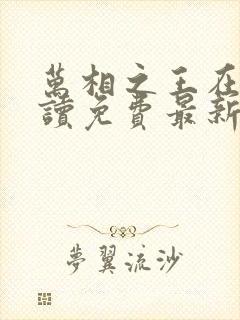 萬相之王在
讀免費最新
夢翼流沙